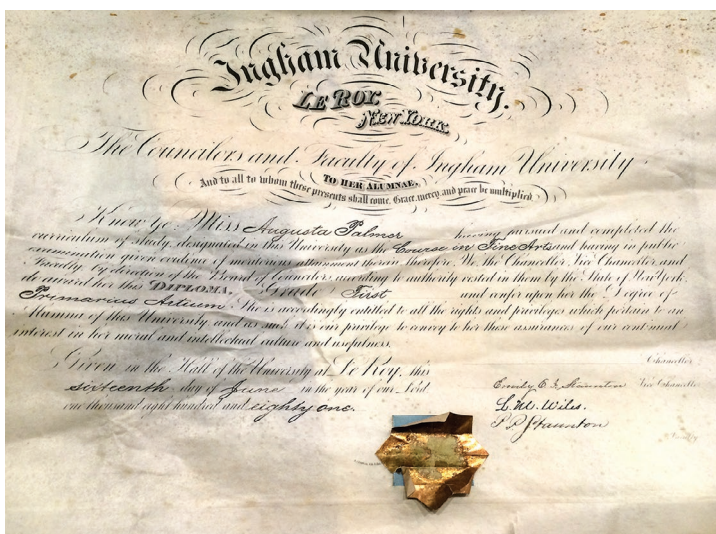 Ingham University.
LE ROY.
NEW YORK.
The Councilors and Faculty of Ingham University
TO HER ALUMNAE,
And to all to whom these presents shall come. Grace, mercy, and peace be multiplied
Know Ye. Miss Augusta Palmer having pursued and completed the
curriculum of study, designated in this University as the Course in Fine Arts and having in public
examination given evidence of meritorious attainment therein. Therefore, We, the Chancellor, Vice Chancellor and
Faculty by direction of the Board of Councilors, according to authority vested in them by the State of New York,
do award her this DIPLOMA, Grade First and confer upon her the Degree of
Primarius Artium. She is accordingly entitled to all the rights and privileges which pertain to an
Alumna of this University and as such it is our privilege to convey to her these assurances of our continual
interest in her moral and intellectual culture and usefulness.
Given in the Hall of the University at Le Roy, this
sixteenth day of June in the year of our Lord
one thousand eight hundred and eighty one.
Chancellor.
Emily E. I. Staunton Vice Chancellor
L. M. Wiles.
P. P. Staunton